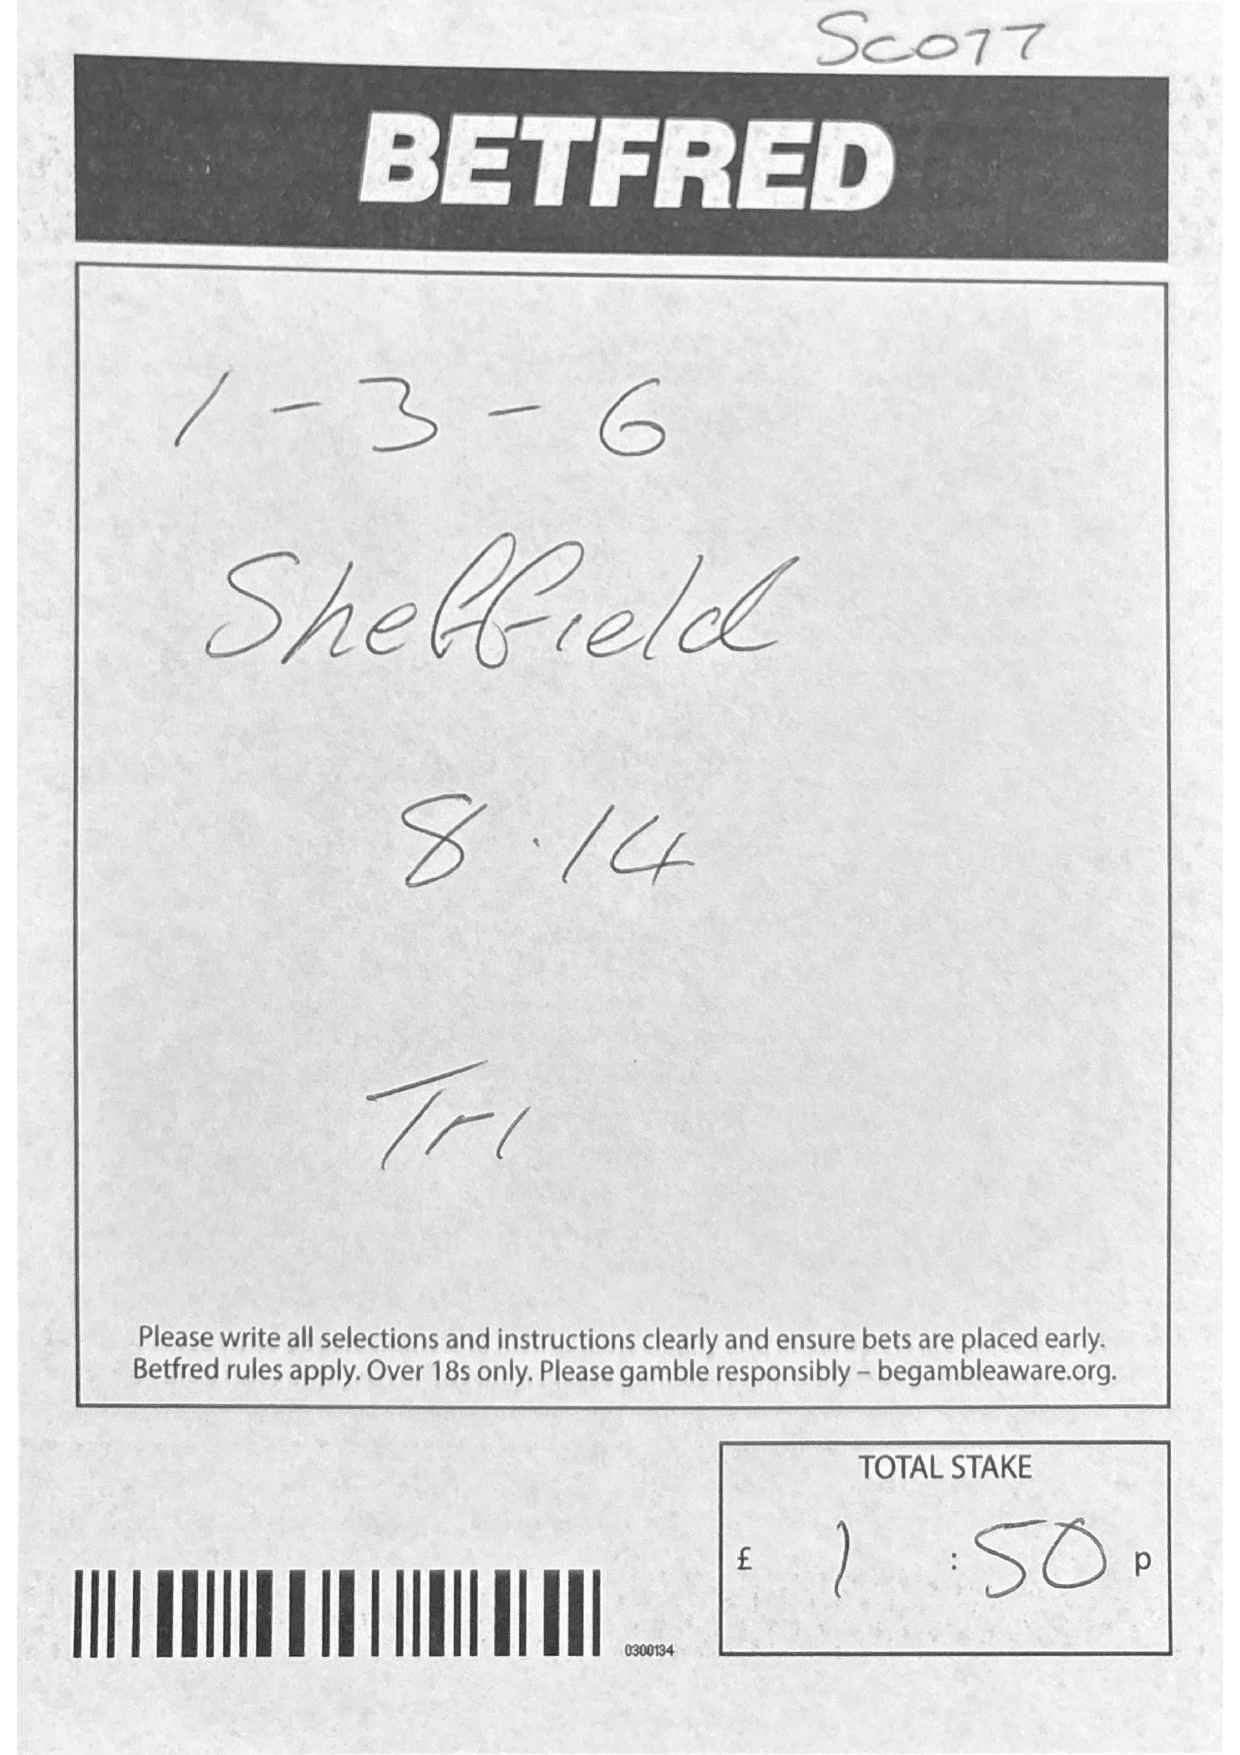 Scott
BETFRED
1 - 3 - 6
Sheffield
8.14
Tri
Please write all selections and instructions clearly and ensure bets are placed early.
Betfred rules apply. Over 18s only. Please gamble responsibly – begambleaware.org.
TOTAL STAKE
£ 1 : 50 p
0300134